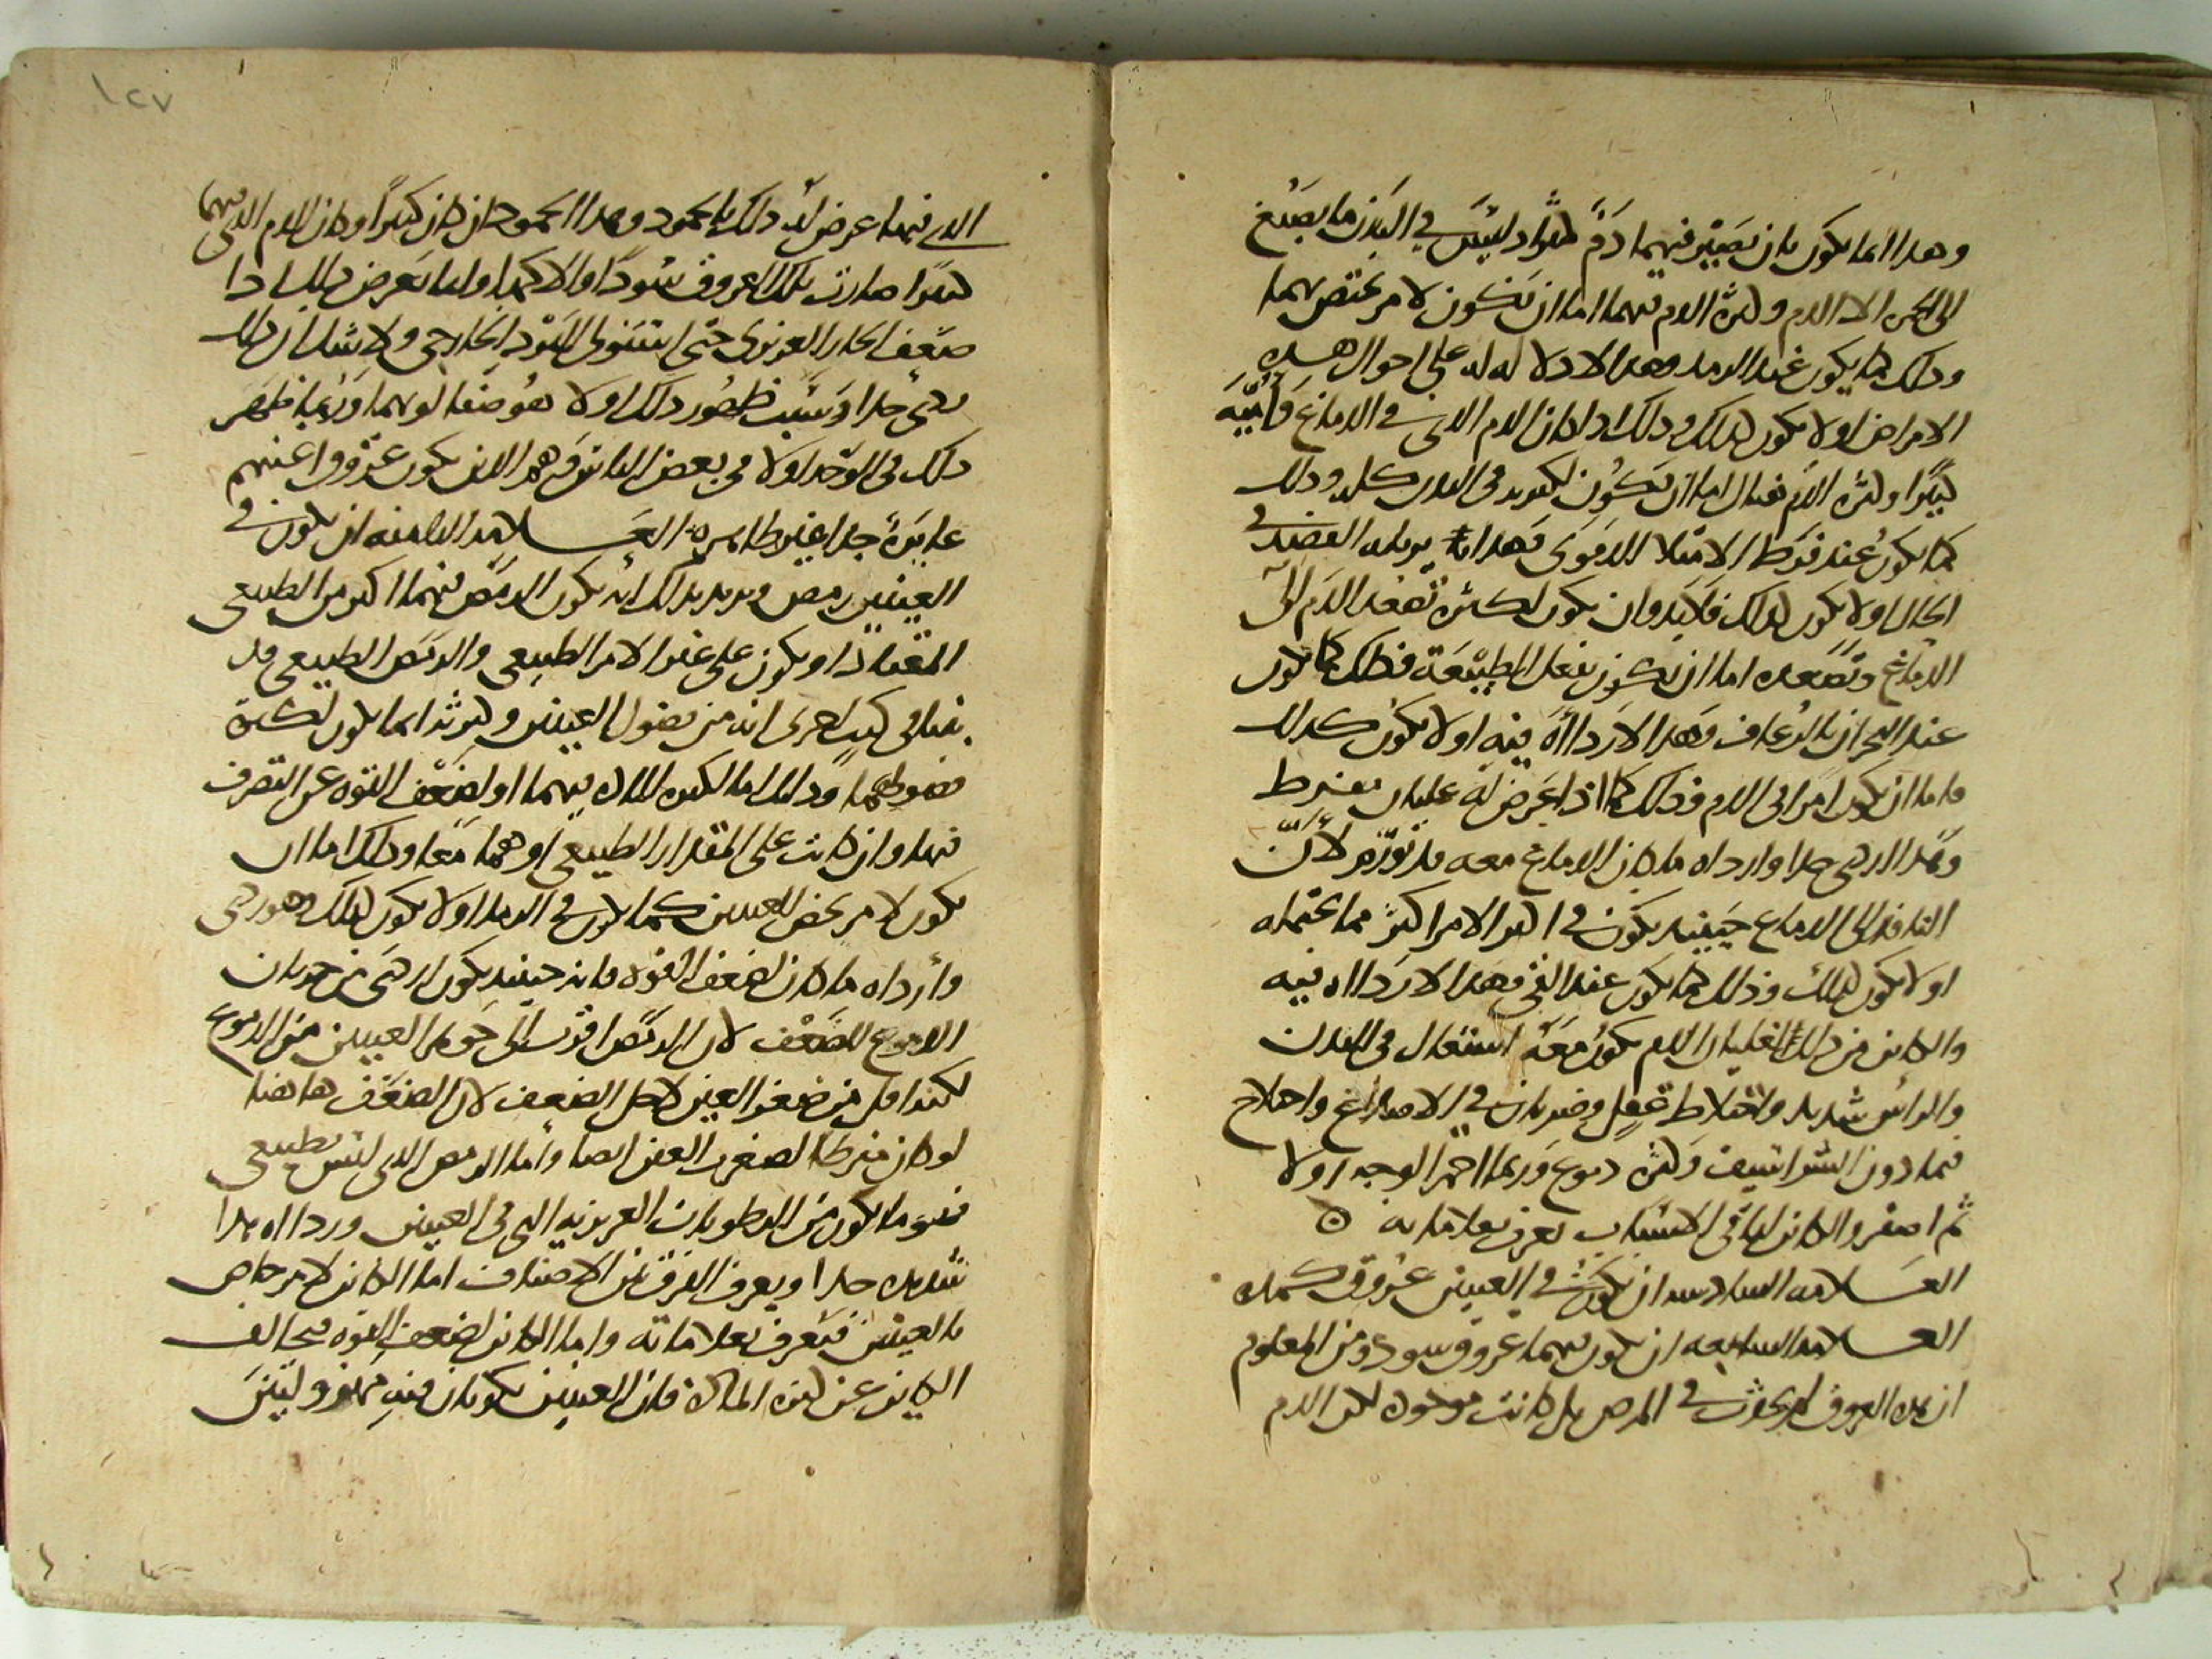 وهذا انما يكون بان يصير فيهما دم كثير اذ ليس في البدن ما يصبغ
الى الحمرة الا الدم وكثرة الدم فيهما اما ان تكون لامر يختص بهما
وذلك كما يكون عند الرمد وهذا لا دلالة له على احوال هذه
الامراض او لا يكون كذلك وذلك اذا كان الدم الذي في الدماغ
كثيرا وكثرة الدم هناك اما ان تكون لكثرته في البدن كله وذلك
كما يكون عند فرط الامتلاء الدموي فهذا يزيله الفصد في
الحال او لا يكون كذلك فلا بد وان يكون لكثرة تصعد الدم الى
الدماغ وتصعده اما ان يكون بفعل الطبيعة فذلك كما يكون
عند البحران بالرعاف وهذا لا رداءة فيه او لا يكون كذلك
فاما ان يكون لامر في الدم فذلك كما اذا عرض له غليان مفرط
وهذا اردى جدا وارداه ما كان الدماغ معه قد تورم لان
النافذ الى الدماغ حينئذ يكون في اكثر الامر اكثر مما يحتمله
او لا يكون كذلك وذلك كما يكون عند القي وهذا لا رداءة فيه
والكائن من ذلك لغليان الدم يكون معه اشتعال في البدن
والراس شديد واختلاط عقل وضربان في الاصداغ واختلاج
فيما دون الشراسيف وكثرة دموع وربما احمر الوجه اولا
ثم اصفر والكائن لباقي الاسباب يعرف بعلاماته ه
العلامة السادسة ان يكون في العينين عروق كمدة
العلامة السابعة ان يكون فيهما عروق سود ومن المعلوم
ان هذه العروق لم تحدث في المرض بل كانت موجودة لكن الدم
١٢٧
الذي فيها عرض له ذلك بالجمود وهذا الجمود ان كان كثيرا وكان الدم الذي فيها
كثيرا صارت تلك العروق سودا والا كمدا وانما يعرض ذلك اذا
ضعف الحار الغريزي حتى استولى البرد الخارجي ولا شك ان ذلك
ردي جدا وسبب ظهور ذلك اولا هو صفا لونهما وربما ظهر
ذلك في الوجه اولا في بعض الناس وهم الذين يكون عروق اعينهم
غايرة جدا غير ظاهرة العلامة الثامنة ان يكون في
العينين رمص ويريد بذلك ان يكون الرمص فيهما اكثر من الطبيعي
المعتاد او يكون على غير الامر الطبيعي والرمص الطبيعي قد
بينا في كتب اخرى انه من فضول العينين وكثرته انما يكون لكثرة
فضولهما وذلك اما لكثرة المادة فيهما او لضعف القوة عن التصرف
فيها وان كانت على المقدار الطبيعي او هما معا وذلك اما ان
يكون لامر يخص العينين كما يكون في الرمد او لا يكون كذلك وهو ردي
وارداه ما كان لضعف القوة فانه حينئذ يكون اردى من جريان
الدموع للضعف لان الرمص اقرب الى جوهر العينين من الدموع
لكنه اقل من صغر العين لاجل الضعف لان الضعف هاهنا
لو كان مفرطا لصغرت العين ايضا واما الرمص الذي ليس بطبيعي
فهو ما يكون من الرطوبات الغريزية التي في العينين ورداءة هذا
شديدة جدا ويعرف الفرق بين الاصناف اما الكائن لامر خاص
بالعينين فيعرف بعلاماته واما الكائن لضعف القوة فيخالف
الكاين عن كثرة المادة فان العينين يكونان فيه